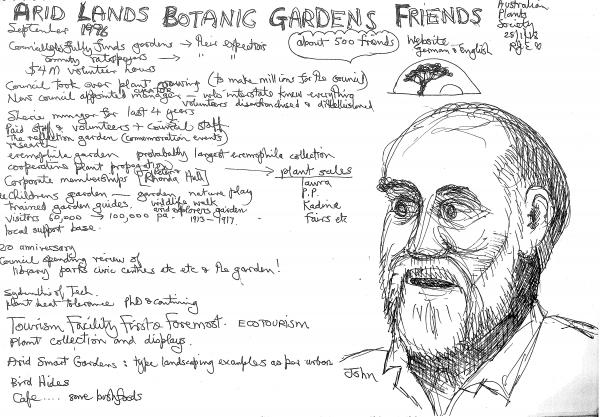 ARID LANDS BOTANIC GARDENS FRIENDS
Australian
Plants
Society
28/11/12
September 1996
about 500 friends
Website
German & English
Council fully funds gardens → their expectation
ratepayers → " "
$4M volunteer hours
Council took over plant growing (to make millions for the council)
New council appointed manager - who interstate knew everything
volunteers disenchanted & disillusioned
Shane manager for last 4 years
Paid staff & volunteers + council staff
The reflection garden (commemoration events)
research
eremophila garden probably largest eremophila collection
cooperative plant propagation → plant sales
Corporate memberships (Rhonda Hall)
Laura
P.P.
Kadina
Fairs etc
Childrens garden — garden, nature play
trained garden guides. wildlife walk
and explorers garden
visitors 60,000 → 100,000 pa. 1913-1917.
local support base.
20 anniversary
Council spending review of
library parks civic centres etc etc & the garden!
Sydney of Tech.
plant heat tolerance PhD & continuing
Tourism Facility First & Foremost. ECOTOURISM
Plant collection and displays.
Arid Smart Gardens: type landscaping examples as per urban
Bird Hides
Cafe .... some bushfoods
John